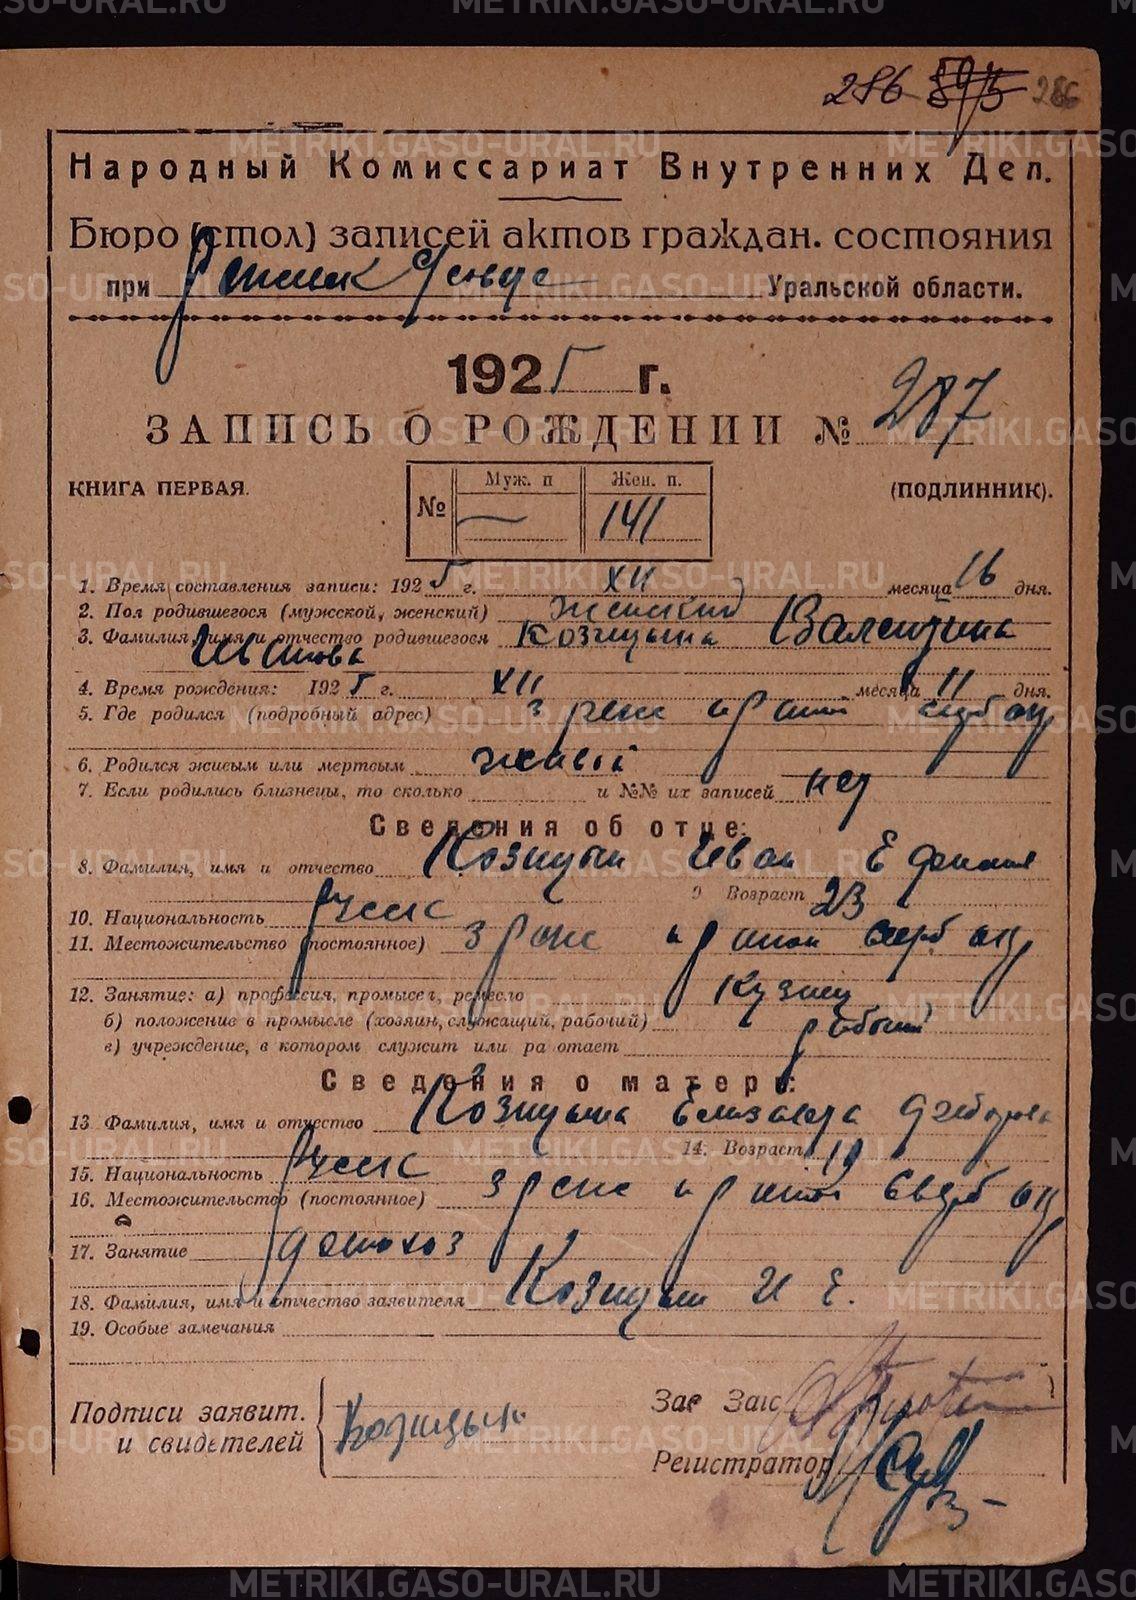 286 286
Народный Комиссариат Внутренних Дел.
Бюро (стол) записей актов граждан. состояния
при Уральской области.
1925 г.
ЗАПИСЬ О РОЖДЕНИИ № 287
КНИГА ПЕРВАЯ. № Муж. п — Жен. п. 141 (ПОДЛИННИК).
1. Время составления записи: 1925 г. XII месяца 16 дня.
2. Пол родившегося (мужской, женский) женский
3. Фамилия, имя и отчество родившегося Козицына Валентина
Иванова
4. Время рождения: 1925 г. XII месяца 11 дня.
5. Где родился (подробный адрес)
6. Родился живым или мертвым живый
7. Если родились близнецы, то сколько и №№ их записей нет
Сведения об отце:
8. Фамилия, имя и отчество Козицын Иван
9 Возраст 23
10. Национальность
11. Местожительство (постоянное)
12. Занятие: а) профессия, промысел, ремесло кузнец
б) положение в промысле (хозяин, служащий, рабочий) рабочий
в) учреждение, в котором служит или ра отает
Сведения о матери:
13 Фамилия, имя и отчество Козицына Елизавета
14. Возраст 19
15. Национальность
16. Местожительство (постоянное)
17. Занятие домохоз
18. Фамилия, имя и отчество заявителя Козицын И Е.
19. Особые замечания
Подписи заявит. Козицын Зав Загс
и свидетелей Регистратор
METRIKI.GASO-URAL.RU